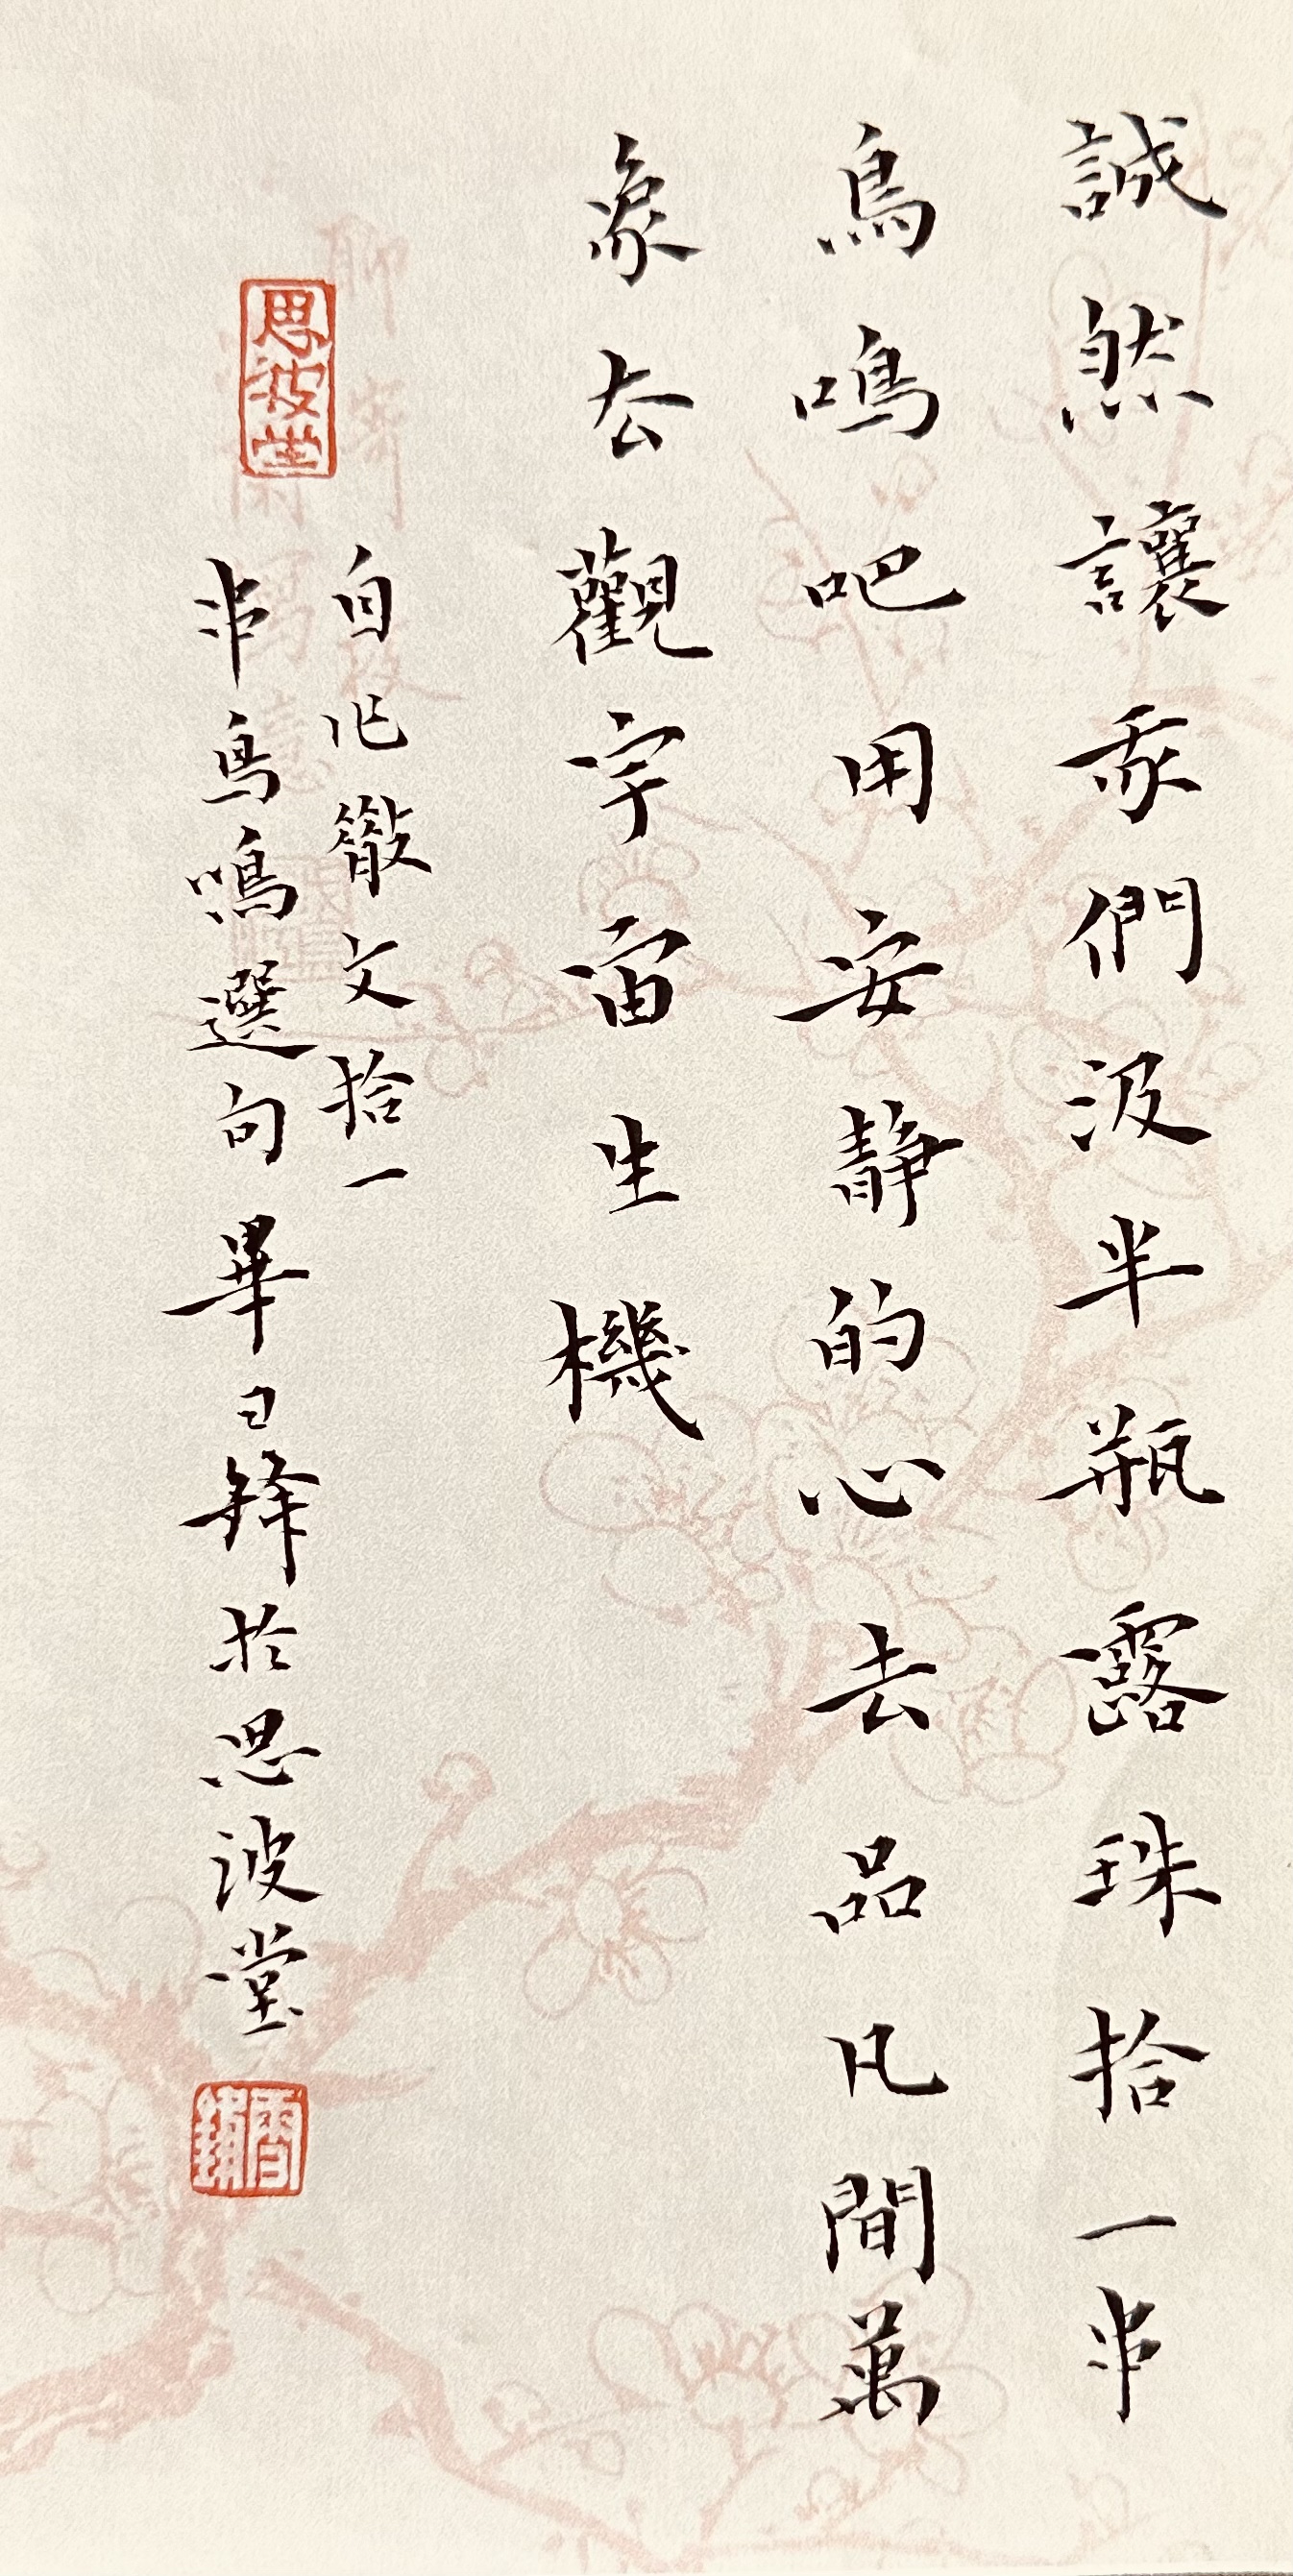 誠然讓我們汲半瓶露珠拾一串
鳥鳴吧用安靜的心去品凡間萬
象去觀宇宙生機
自作散文拾一
串鳥鳴選句畢日鋒於思波堂
思波堂